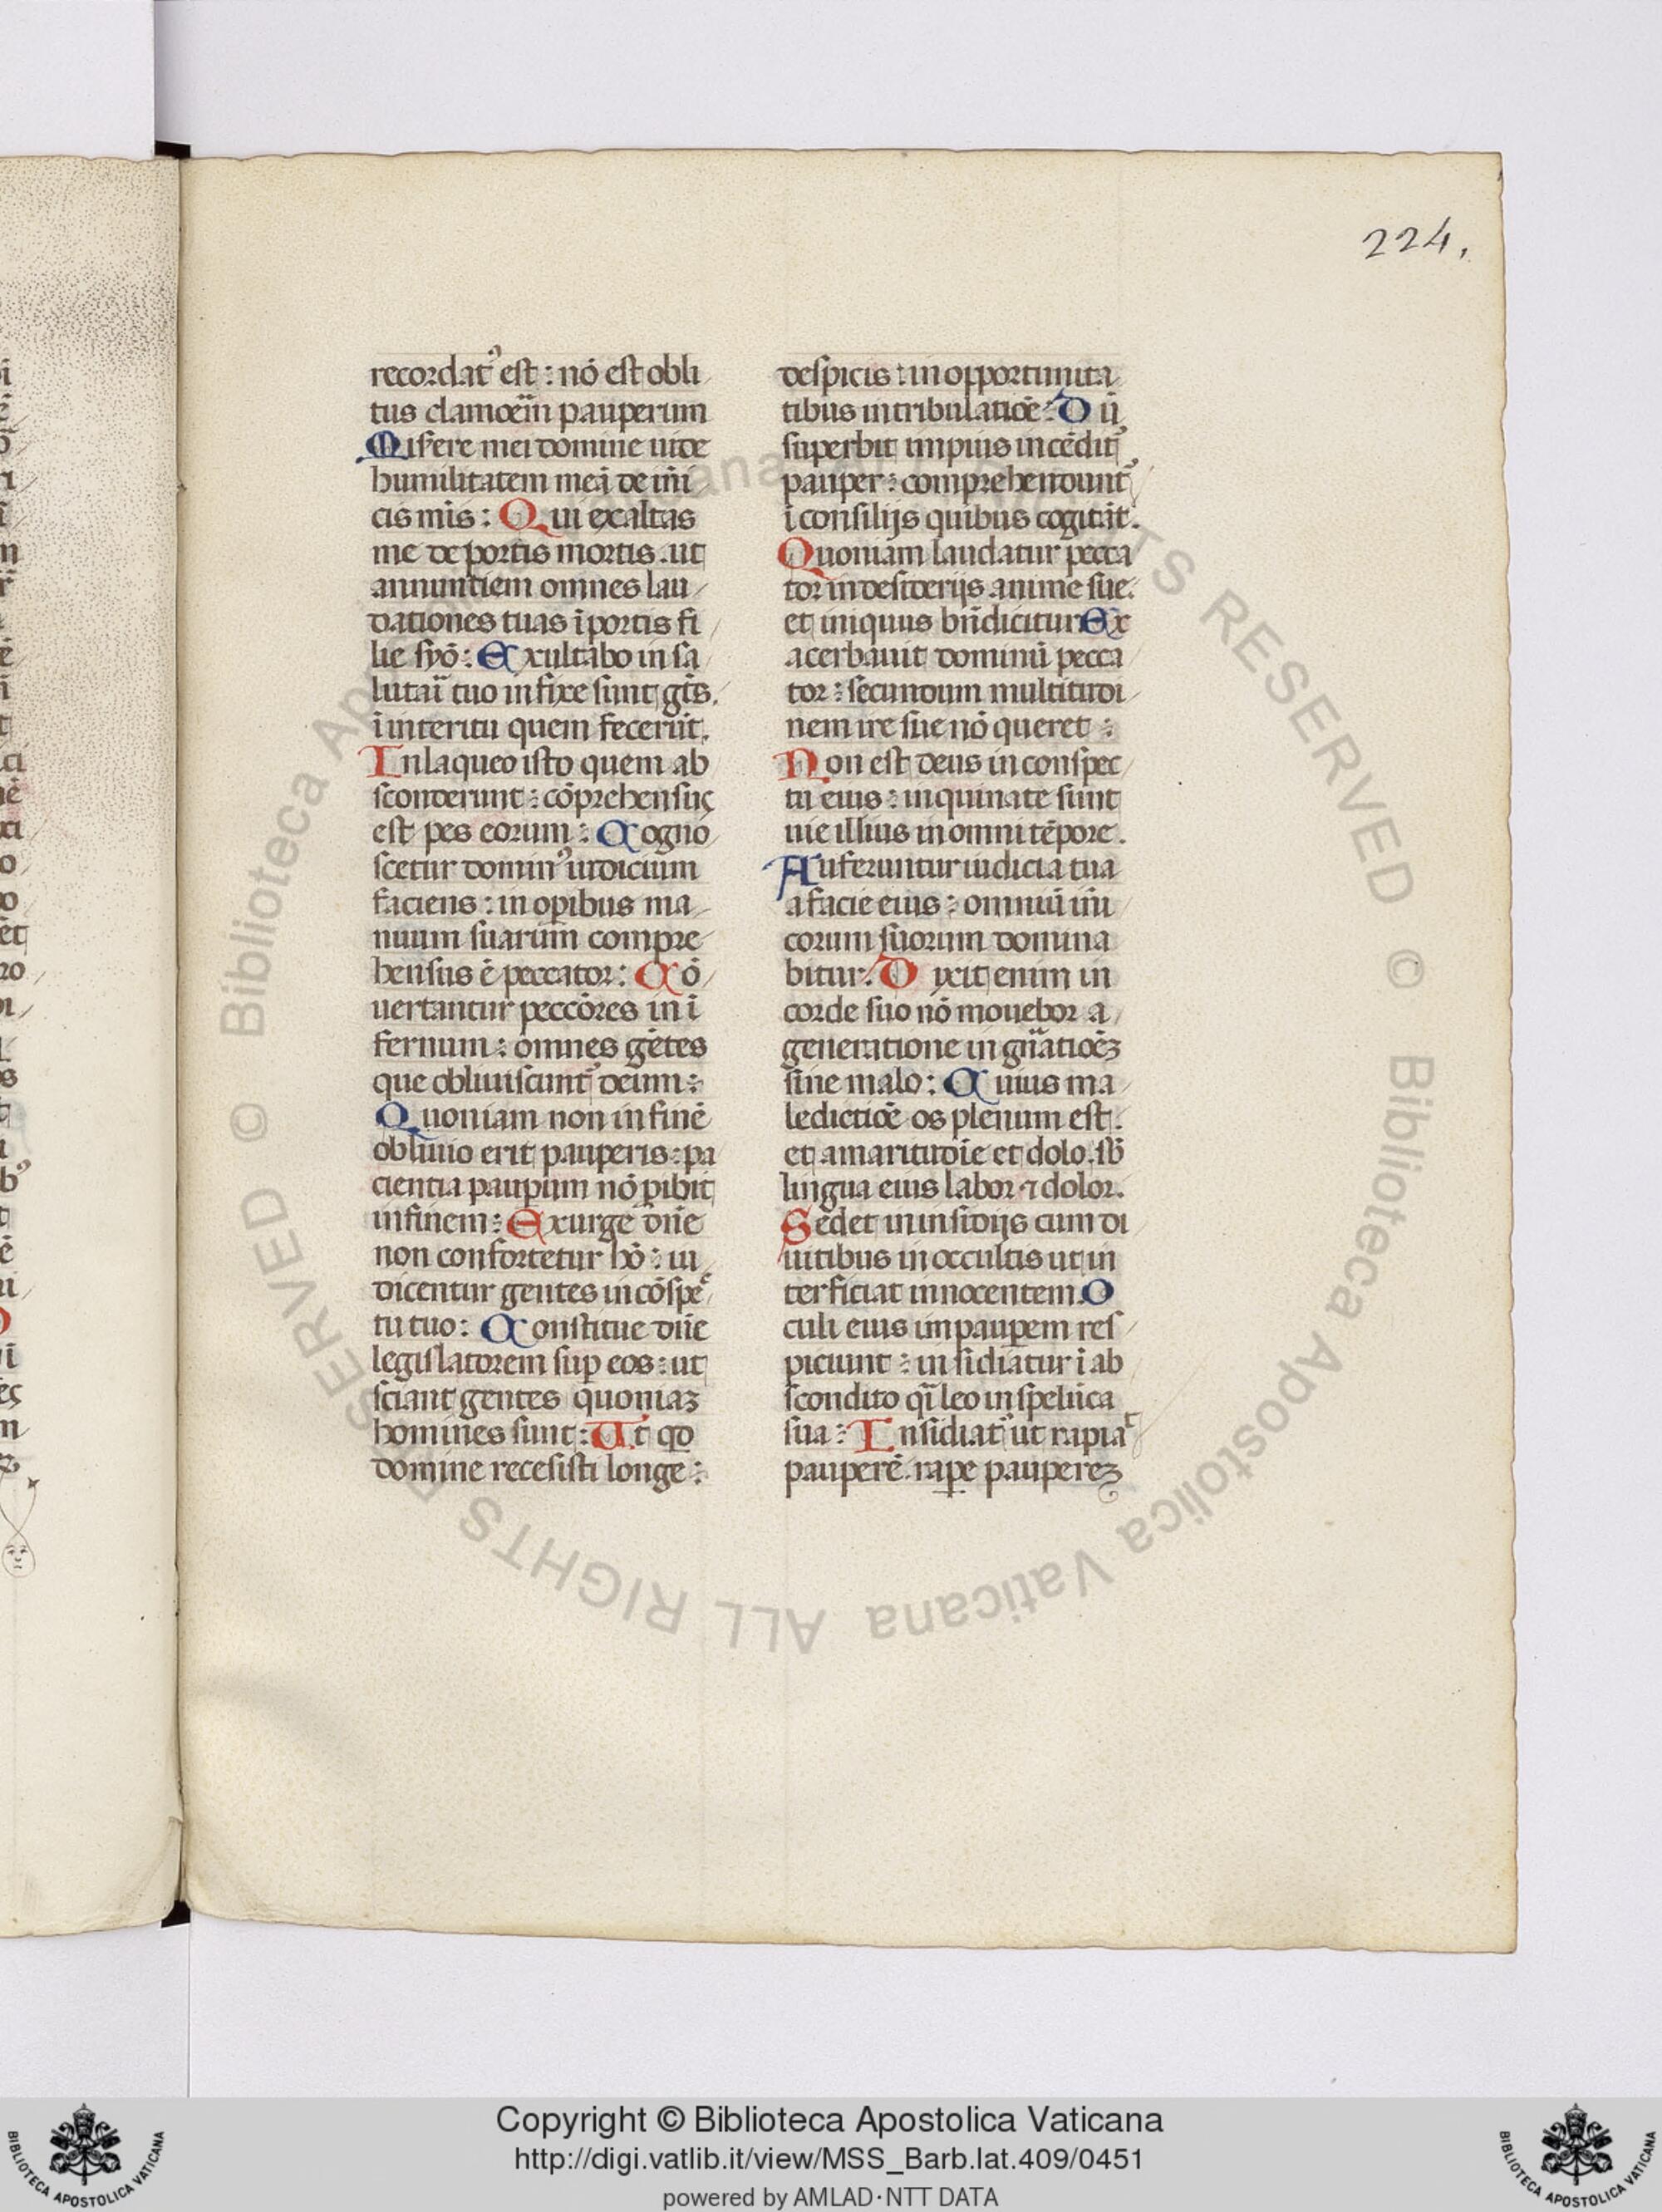 224.
recordat᷒ est : nō est obli
tus clamoēm pauperum
Mis̄ere mei domine uide
humilitatem meā de inī
cis mīs : Qui exaltas
me de portis mortis . ut
annuntiem omnes lau
dationes tuas ī portis fi
lie syō : Exultabo in sa
lutaī tuo infixe sunt gēs .
ī interitu quem fecerūt .
In laqueo isto quem ab
sconderunt : cōprehensus
est pes eorum : Cogno
scetur domin᷒ iudicium
faciens : in opibus ma
nuum suarum compre
hensus ē peccator : Cō
uertantur peccōres in ī
fernum : omnes gētes
que obliuiscunt᷒ deum :
Quoniam non in finē
obliuio erit pauperis : pa
cientia paupum nō pibit
in finem : Exurge dn̄e
non confortetur hō : iu
dicentur gentes in cōspec
tu tuo : Constitue dn̄e
legislatorem sup eos : ut
sciant gentes quoniaꝫ
homines sunt : Ut qd
domine recesisti longe :
despicis : in opportunita
tibus in tribulatiōe : Dū
superbit impius incēdit᷒
pauper : comprehendunt᷒
ī consilijs quibus cogitāt .
Quoniam laudatur pecca
tor in desideriis anime sue :
et iniquus bn̄dicitur Ex
acerbauit dominū pecca
tor : secundum multitudi
nem ire sue nō queret :
Non est deus in conspec
tu eius : inquinate sunt
uie illius in omni tēpore .
Auferuntur iudicia tua
a facie eius : omniū inī
corum suorum domina
bitur : Dixit enim in
corde suo nō mouebor a
generatione in gn̄atiōeꝫ
sine malo : Cuius ma
ledictiōe os plenum est :
et amaritudīe et dolo . sb̄
lingua eius labor ⁊ dolor .
Sedet in insidijs cum di
uitibus in occultis ut in
terficiat innocentem . O
culi eius in paupem res
piciunt : insidiatur ī ab
scondito qī leo in spelūca
sua : Insidiat᷒ ut rapiat
pauperē . rape paupereꝫ
© Biblioteca Apostolica Vaticana ALL RIGHTS RESERVED © Biblioteca Apostolica Vaticana ALL RIGHTS RESERVED
Copyright © Biblioteca Apostolica Vaticana
http://digi.vatlib.it/view/MSS_Barb.lat.409/0451
powered by AMLAD·NTT DATA
BIBLIOTECA APOSTOLICA VATICANA
BIBLIOTECA APOSTOLICA VATICANA